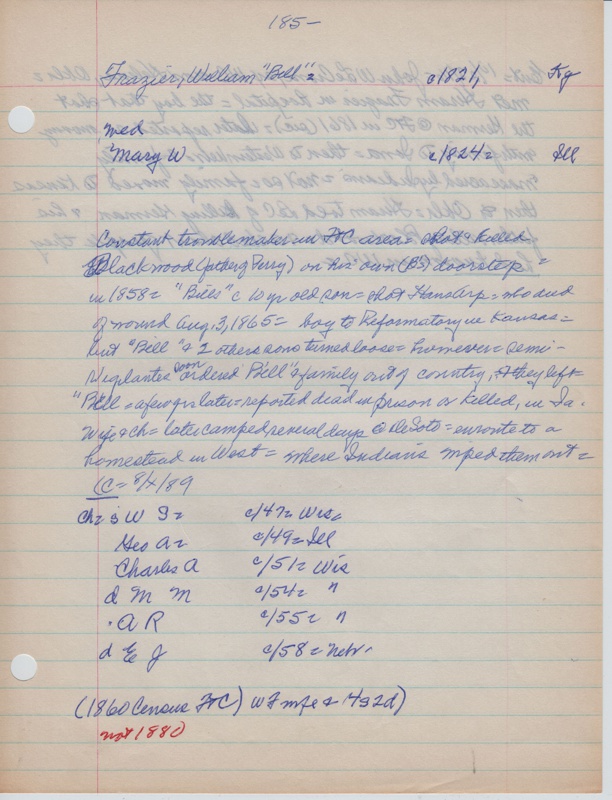 185-
Frazier, William "Bill" = c1821, Ky
Wed
Mary W c/1824 = Ill
Constant troublemaker in FtC area = shot & killed
Blackwood (father of Perry) on his own (B's) doorstep =
in 1858 = "Bill's" c 10 yr old son = shot Hans Carp = who died
of wound Aug. 3, 1865 = boy to Reformatory in Kansas =
but "Bill" & 2 others sons turned loose = however = semi-
Vigilantes soon ordered "Bill" & family out of country, & they left =
"Bill" = a few yrs later = reported dead in prison or killed, in Ia.
Wife & ch = later camped several days @ DeSoto = enroute to a
homestead in West = where Indians wiped them out =
LC = 8/4/89
Ch = s W I = c/47 = Wis =
Geo A = c/49 = Ill
Charles A c/51 = Wis
d M M c/54 = "
· A R c/55 = "
d E J c/58 = Nebr.
(1860 Census FtC) W F wife & 4s 2d)
not 1880